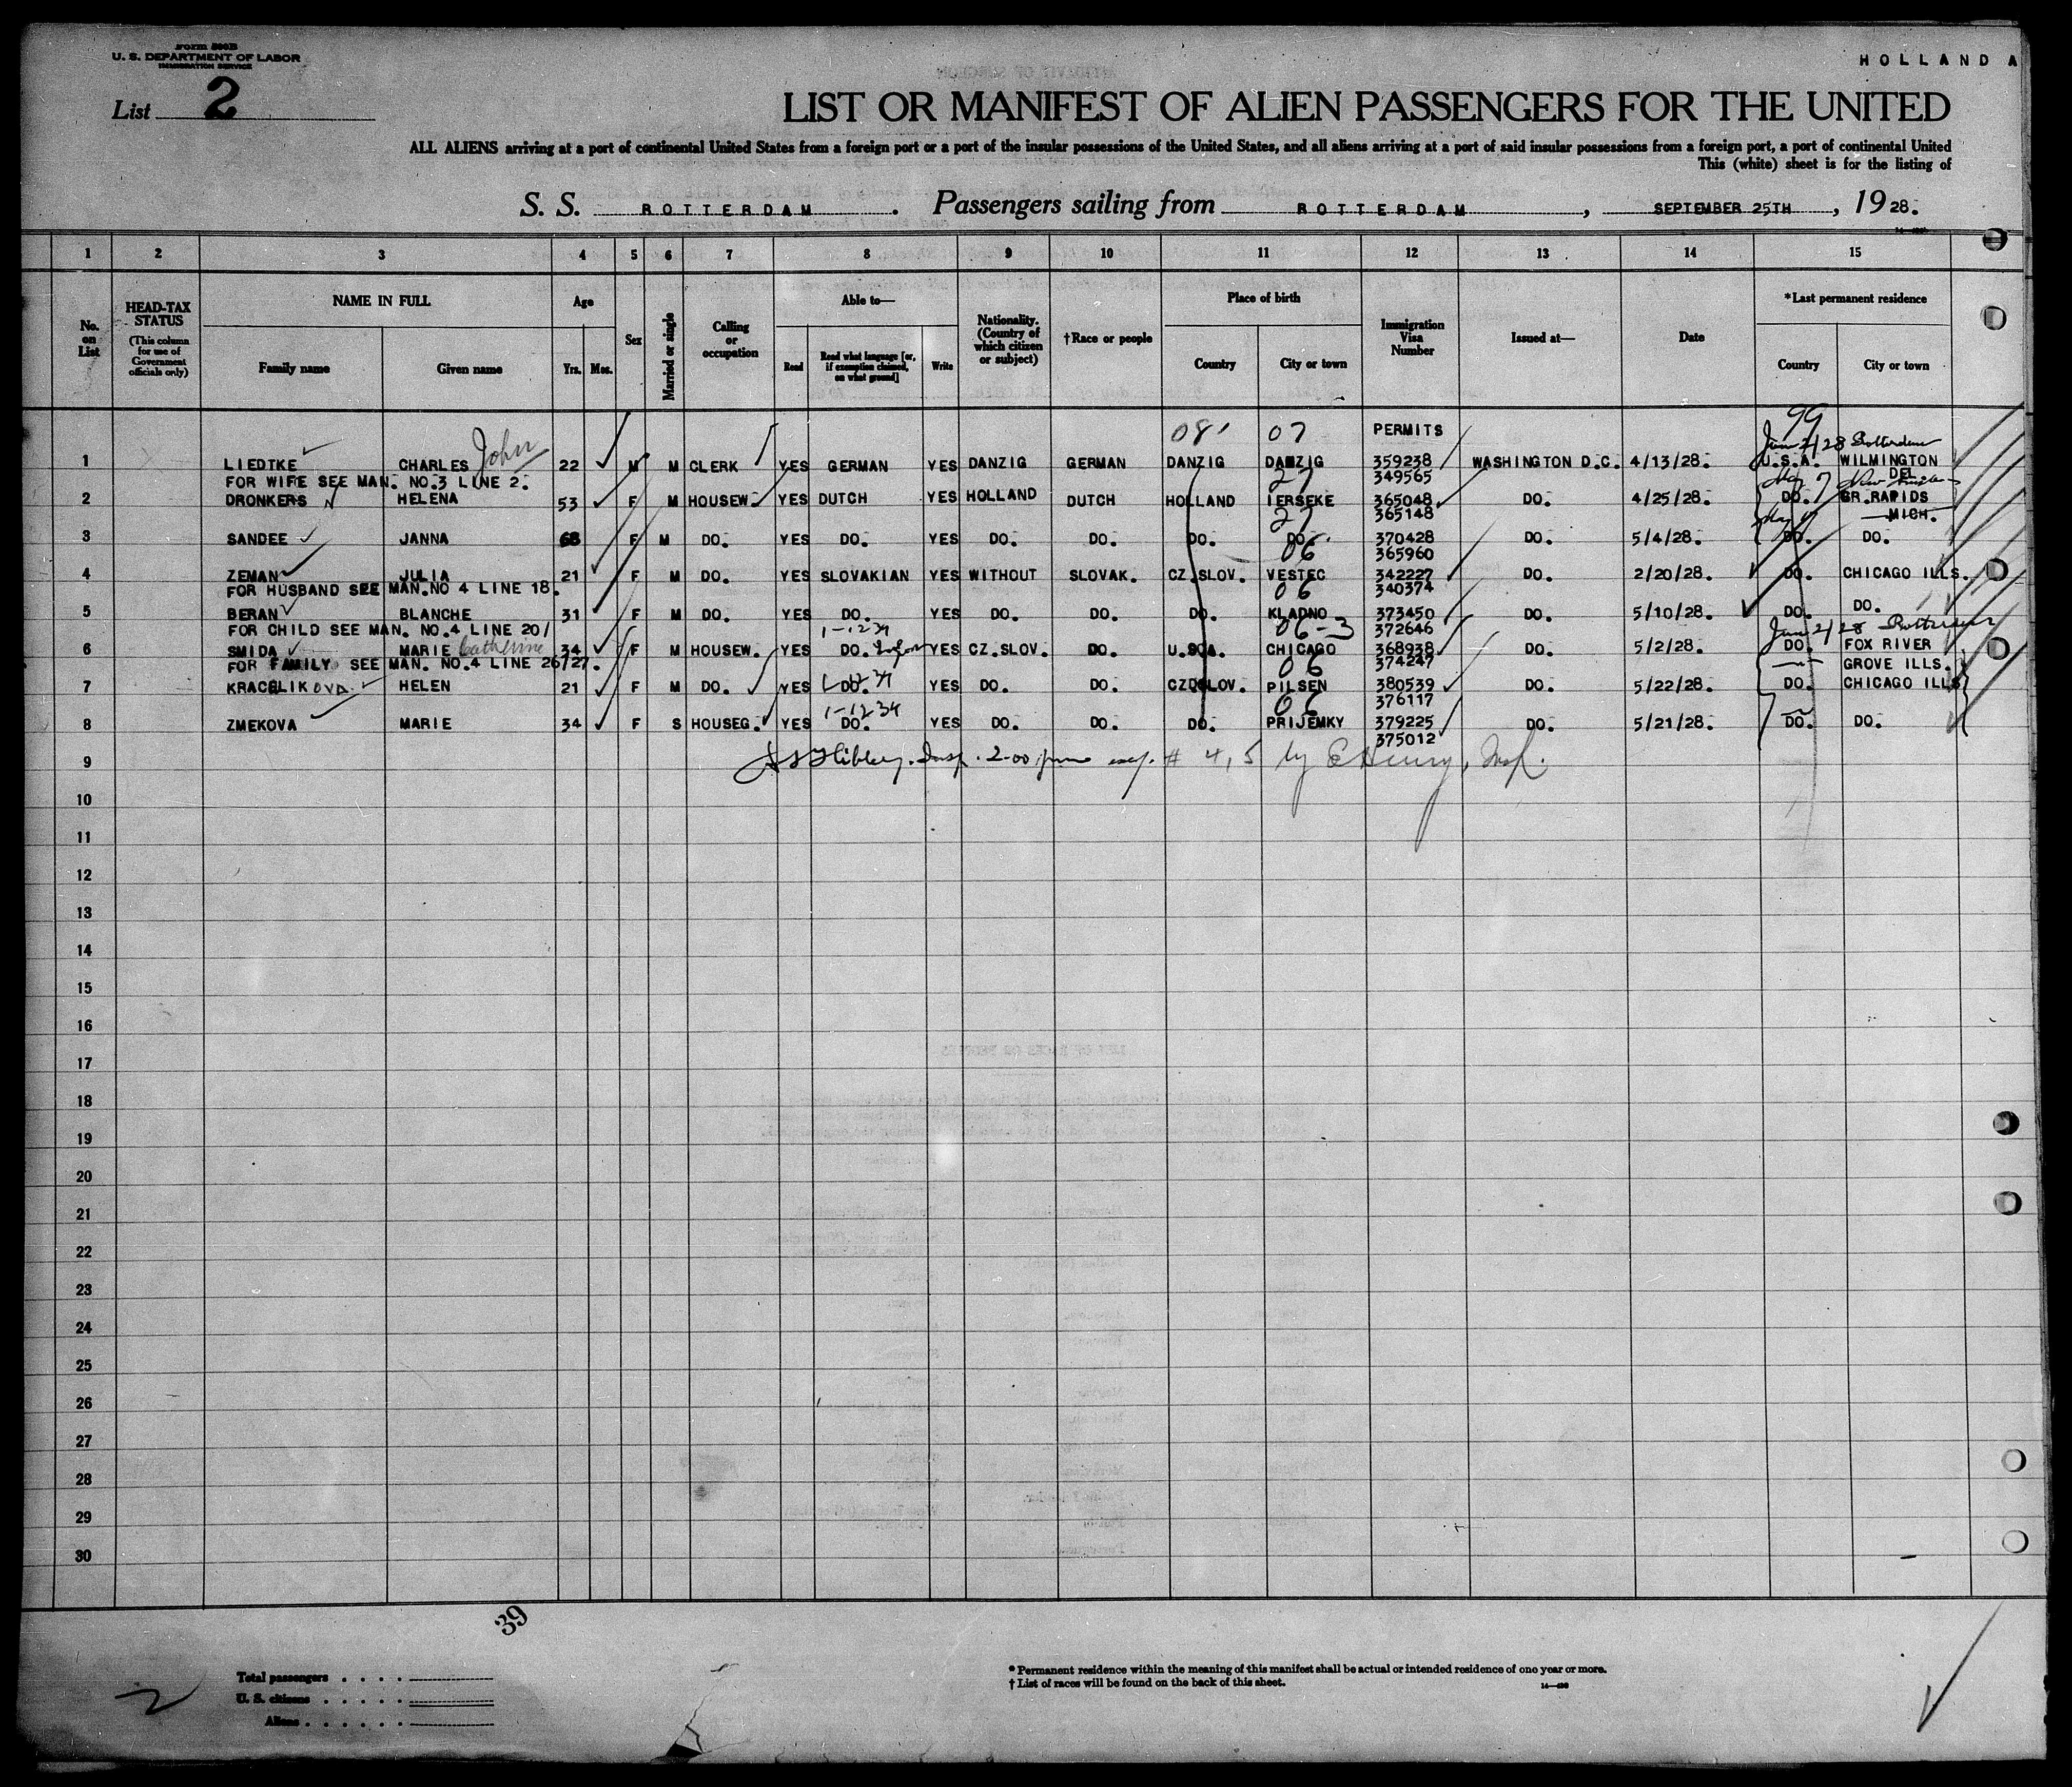 Form 500B
U. S. DEPARTMENT OF LABOR
IMMIGRATION SERVICE
HOLLAND A
List 2
LIST OR MANIFEST OF ALIEN PASSENGERS FOR THE UNITED
ALL ALIENS arriving at a port of continental United States from a foreign port or a port of the insular possessions of the United States, and all aliens arriving at a port of said insular possessions from a foreign port, a port of continental United
This (white) sheet is for the listing of
S. S. ROTTERDAM. Passengers sailing from ROTTERDAM, SEPTEMBER 25TH, 1928.
1 2 3 4 5 6 7 8 9 10 11 12 13 14 15
No. on List
HEAD-TAX STATUS
(This column for use of Government officials only)
NAME IN FULL
Family name Given name
Age
Yrs. Mos.
Sex
Married or single
Calling or occupation
Able to—
Read Read what language [or, if exemption claimed, on what ground] Write
Nationality. (Country of which citizen or subject)
†Race or people
Place of birth
Country City or town
Immigration Visa Number
Issued at—
Date
*Last permanent residence
Country City or town
08 07 PERMITS 99
Jun 2/28 Rotterdam
1 LIEDTKE CHARLES John 22 M M CLERK YES GERMAN YES DANZIG GERMAN DANZIG DANZIG 359238 WASHINGTON D.C. 4/13/28. U.S.A. WILMINGTON
FOR WIFE SEE MAN. NO.3 LINE 2. 27 349565 DEL
2 DRONKERS HELENA 53 F M HOUSEW. YES DUTCH YES HOLLAND DUTCH HOLLAND IERSEKE 365048 DO. 4/25/28. DO. GR.RAPIDS
27 365148 MICH.
3 SANDEE JANNA 68 F M DO. YES DO. YES DO. DO. DO. DO. 370428 DO. 5/4/28. DO. DO.
06 365960
4 ZEMAN JULIA 21 F M DO. YES SLOVAKIAN YES WITHOUT SLOVAK. CZ.SLOV. VESTEC 342227 DO. 2/20/28. DO. CHICAGO ILLS.
FOR HUSBAND SEE MAN.NO 4 LINE 18. 06 340374
5 BERAN BLANCHE 31 F M DO. YES DO. YES DO. DO. DO. KLADNO 373450 DO. 5/10/28. DO. DO.
FOR CHILD SEE MAN. NO.4 LINE 20/ 1-1234 06-3 372646 Jun 2/28 Rotterdam
6 SMIDA MARIE Catherine 34 F M HOUSEW. YES DO. YES CZ.SLOV. DO. U.S.A. CHICAGO 368938 DO. 5/2/28. DO. FOX RIVER
FOR FAMILY SEE MAN. NO.4 LINE 26/27. 06 374247 GROVE ILLS.
7 KRACELIKOVA HELEN 21 F M DO. YES DO. YES DO. DO. CZ.SLOV. PILSEN 380539 DO. 5/22/28. DO. CHICAGO ILLS
1-1234 06 376117
8 ZMEKOVA MARIE 34 F S HOUSEG. YES DO. YES DO. DO. DO. PRIJEMKY 379225 DO. 5/21/28. DO. DO.
375012
9 Insp. 2-00 # 4, 5 by E Henry, Insp.
10
11
12
13
14
15
16
17
18
19
20
21
22
23
24
25
26
27
28
29
30
39
Total passengers
U. S. citizens
Aliens
* Permanent residence within the meaning of this manifest shall be actual or intended residence of one year or more.
† List of races will be found on the back of this sheet.
2